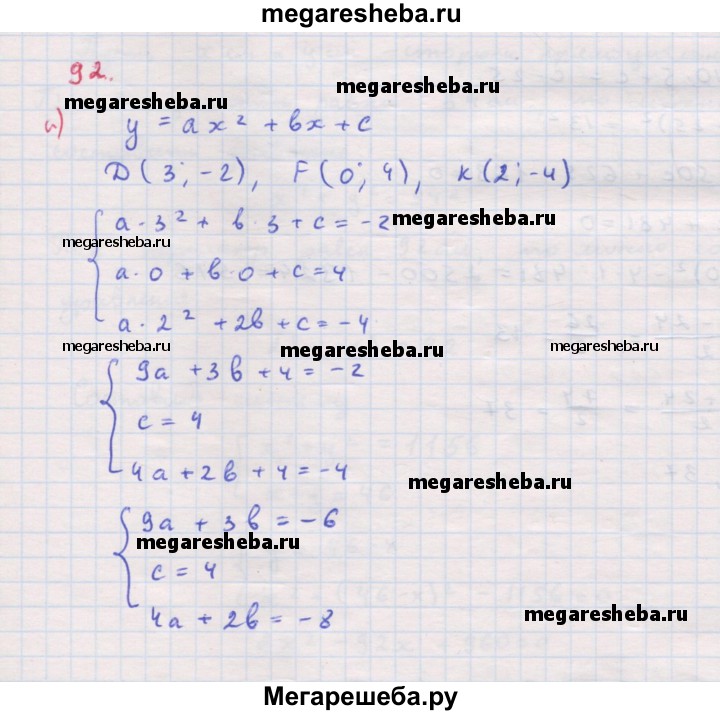 megaresheba.ru
92.
megaresheba.ru megaresheba.ru
а) y = ax² + bx + c
D(3; -2), F(0; 4), K(2; -4)
a·3² + b·3 + c = -2 megaresheba.ru
megaresheba.ru
a·0 + b·0 + c = 4
a·2² + 2b + c = -4
megaresheba.ru megaresheba.ru megaresheba.ru
9a + 3b + 4 = -2
c = 4
4a + 2b + 4 = -4 megaresheba.ru
9a + 3b = -6
megaresheba.ru
c = 4
4a + 2b = -8 megaresheba.ru
Мегарешеба.ру